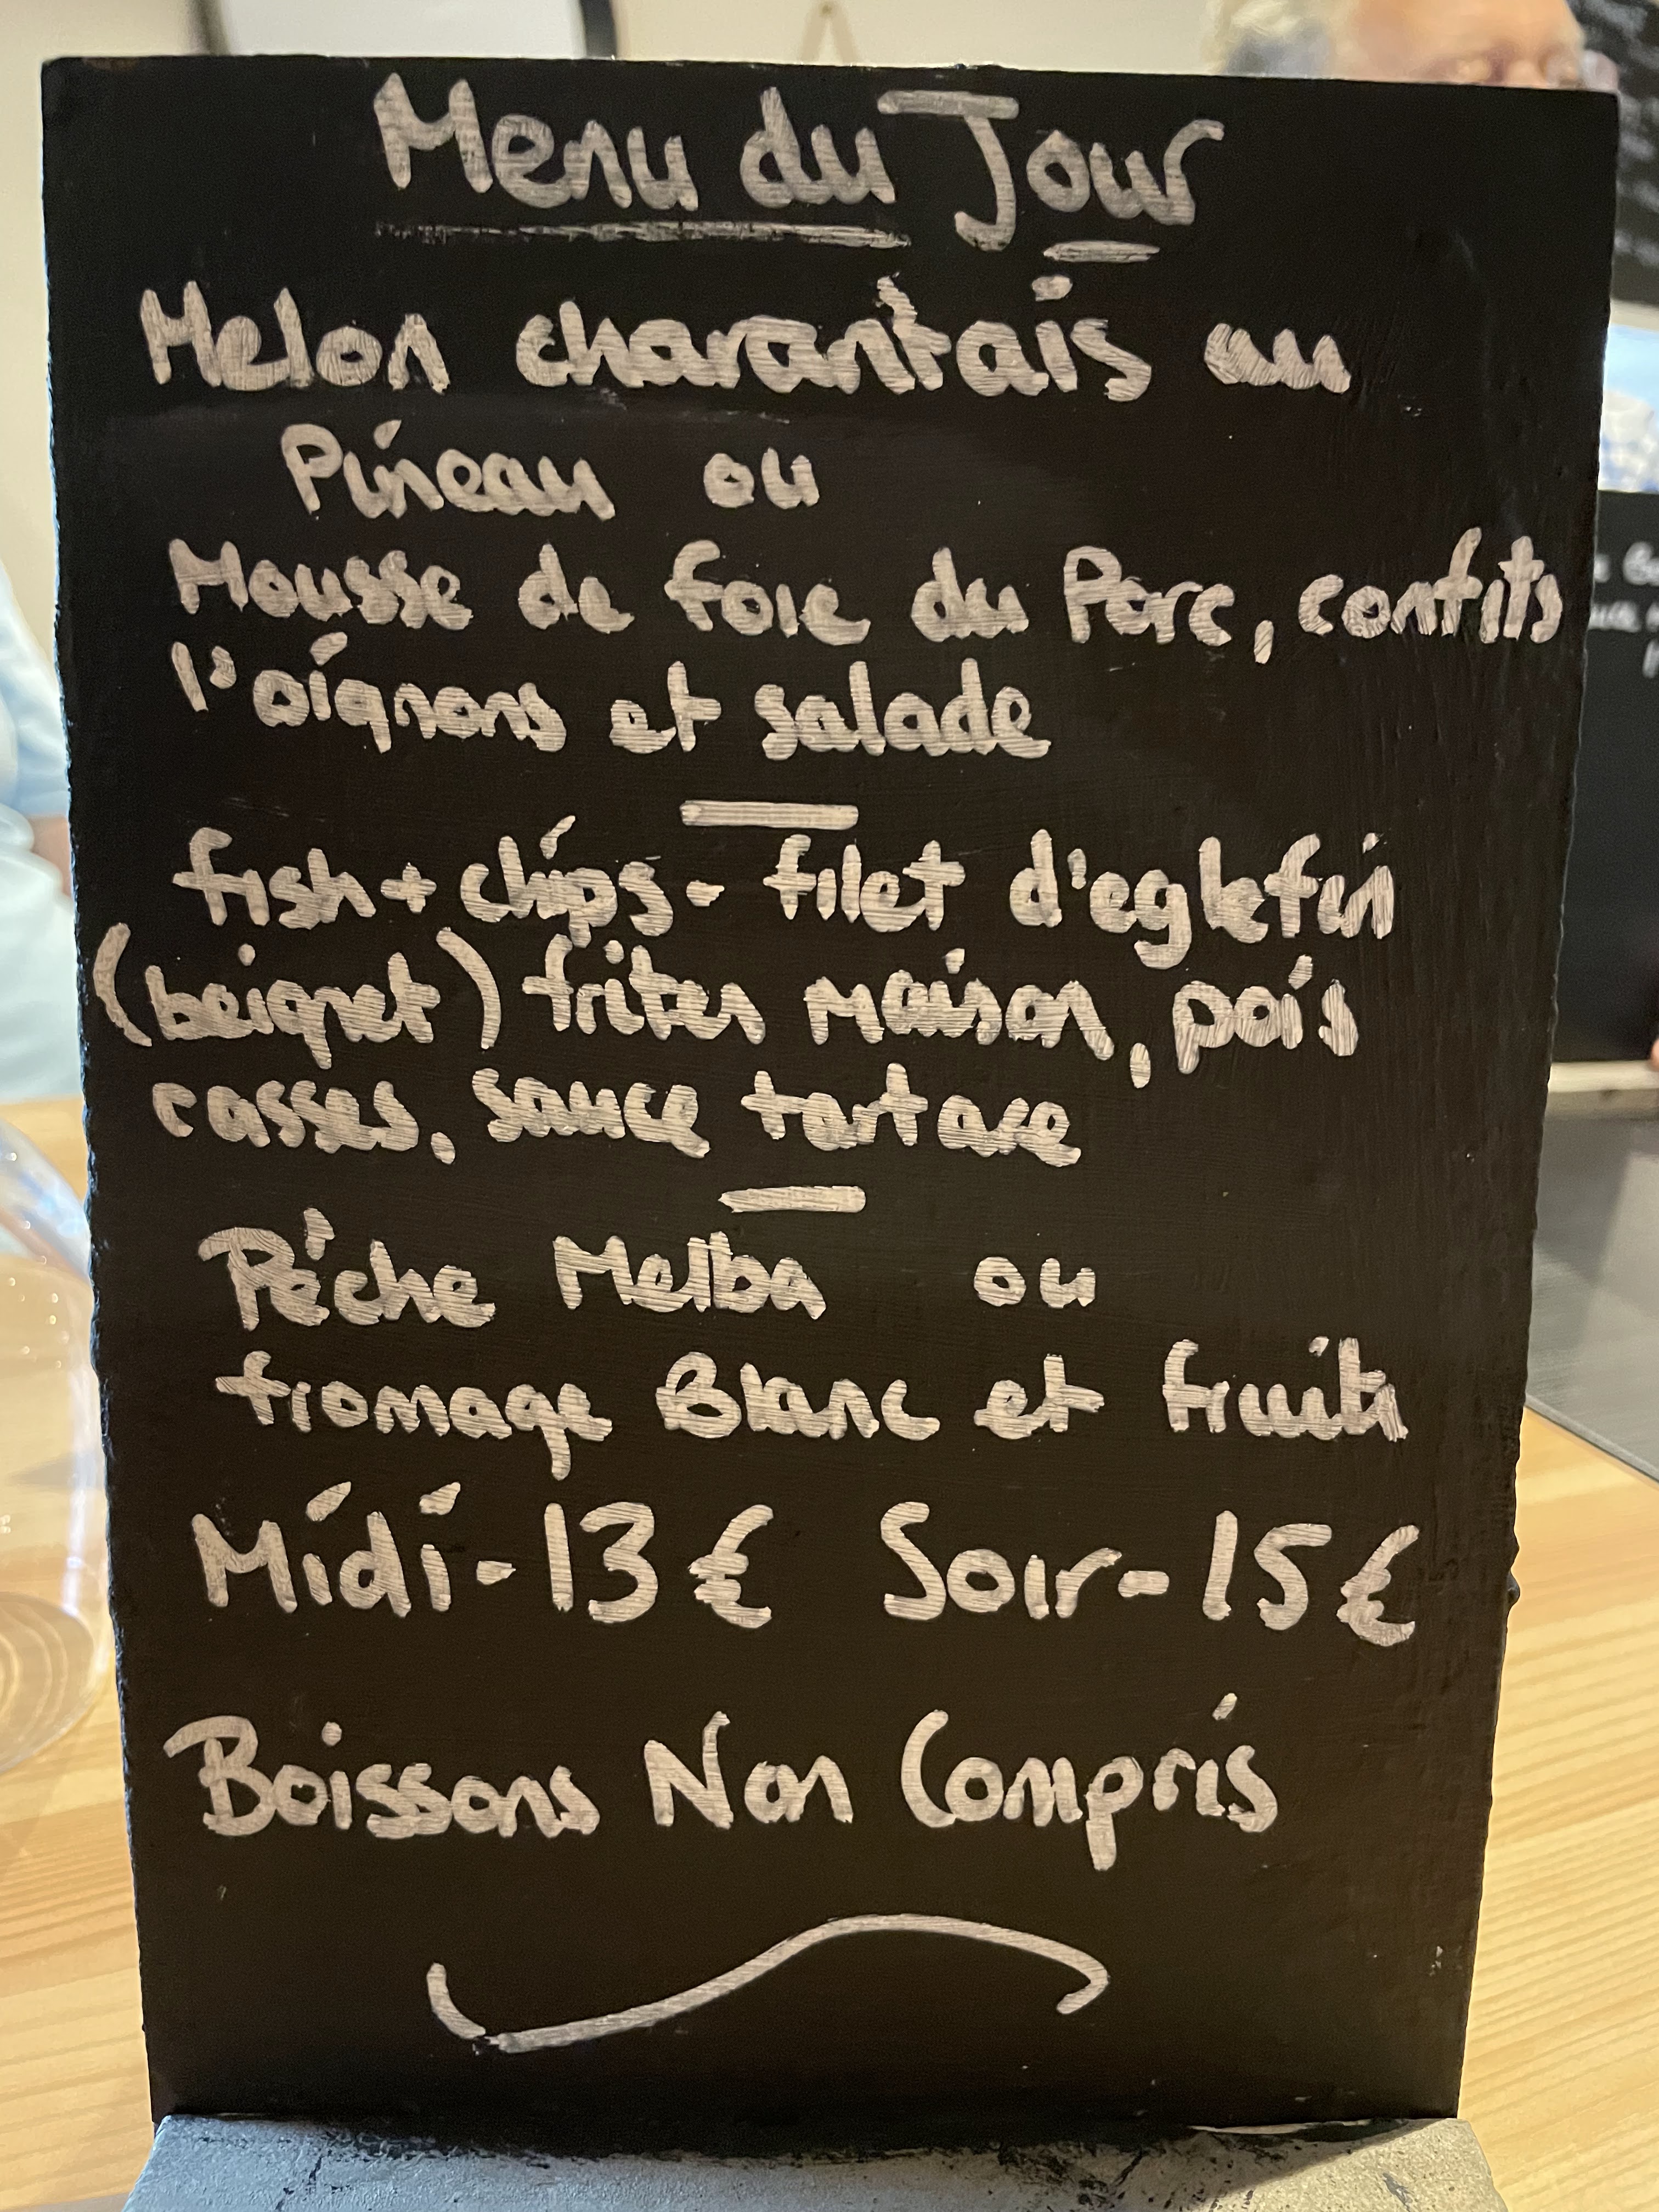 Menu du Jour
Melon charantais au
Pineau ou
Mousse de foie du Porc, confits
l'oignons et salade
fish + chips - filet d'eglefin
(beignet) frites maison, pois
casses, sauce tartare
Pêche Melba ou
fromage Blanc et fruits
Midi - 13 € Soir - 15 €
Boissons Non Compris